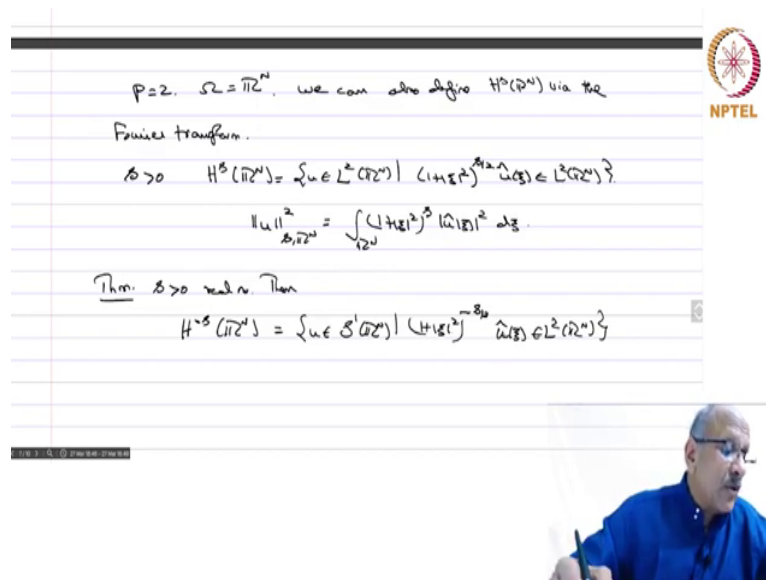 p=2. Ω = ℝᴺ. we can also define Hˢ(ℝᴺ) via the
Fourier transform.
s>0 Hˢ(ℝᴺ) = {u ∈ L²(ℝᴺ) | (1+|ξ|²)^{s/2} û(ξ) ∈ L²(ℝᴺ)}.
‖u‖²_{s,ℝᴺ} = ∫_{ℝᴺ} (1+|ξ|²)ˢ |û(ξ)|² dξ.
Thm. s>0 real no. Then
H⁻ˢ(ℝᴺ) = {u ∈ S'(ℝᴺ) | (1+|ξ|²)^{-s/2} û(ξ) ∈ L²(ℝᴺ)}
NPTEL